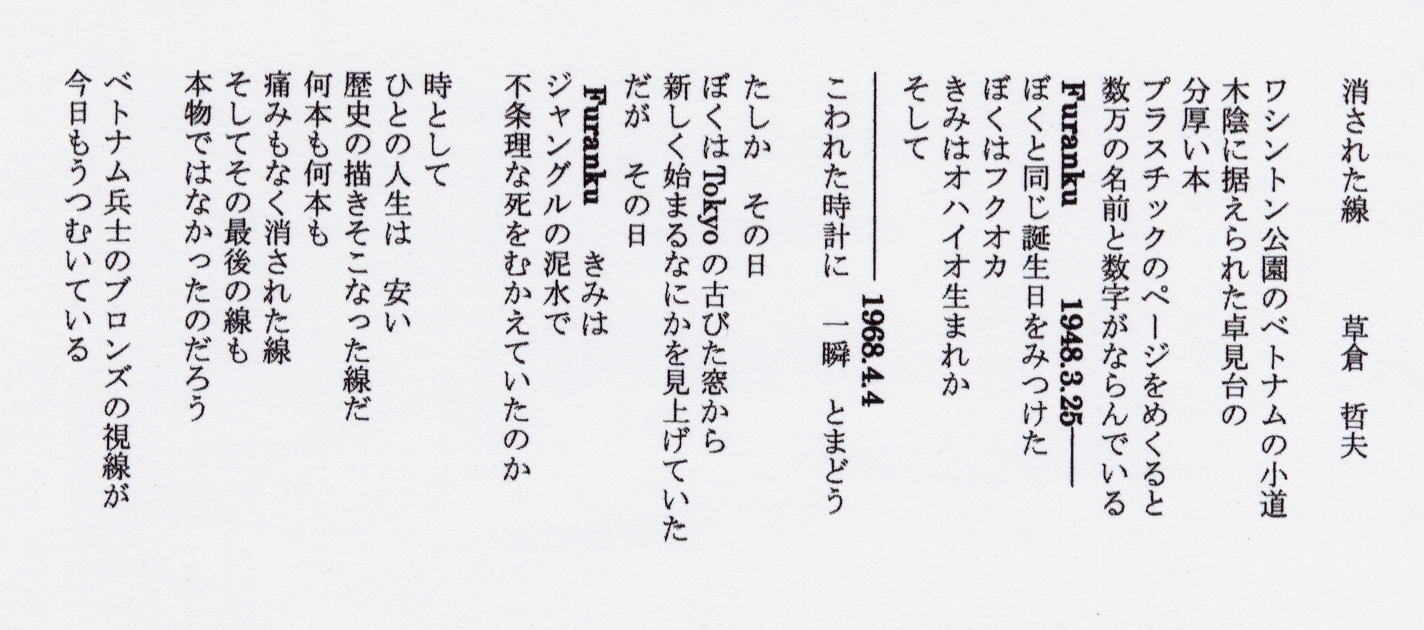 消された線　　　草倉　哲夫
ワシントン公園のベトナムの小道
木陰に据えられた卓見台の
分厚い本
プラスチックのページをめくると
数万の名前と数字がならんでいる
Furanku　　　1948.3.25――
ぼくと同じ誕生日をみつけた
ぼくはフクオカ
きみはオハイオ生まれか
そして
――――――― 1968.4.4
こわれた時計に　一瞬　とまどう
たしか　その日
ぼくはTokyoの古びた窓から
新しく始まるなにかを見上げていた
だが　その日
Furanku　きみは
ジャングルの泥水で
不条理な死をむかえていたのか
時として
ひとの人生は　安い
歴史の描きそこなった線だ
何本も何本も
痛みもなく消された線
そしてその最後の線も
本物ではなかったのだろう
ベトナム兵士のブロンズの視線が
今日もうつむいている